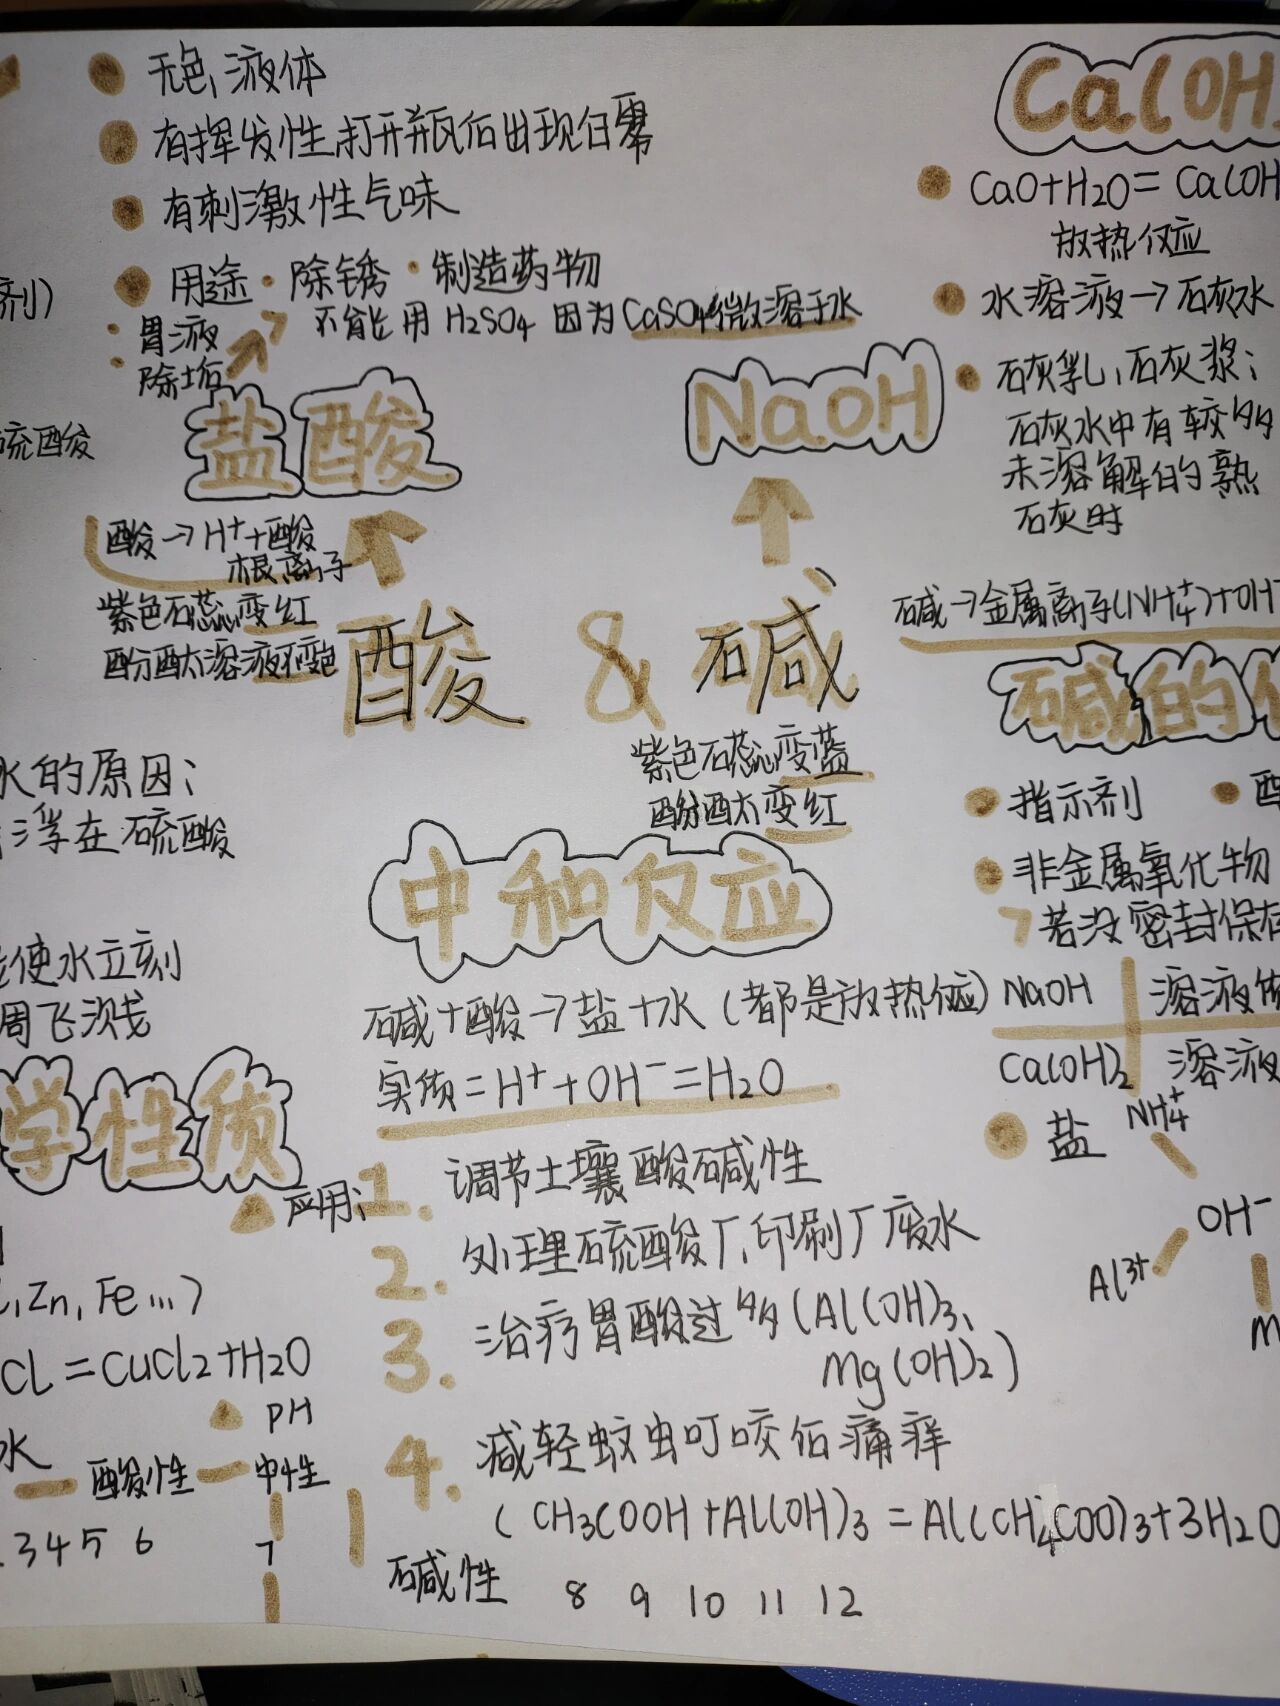 无色,液体
有挥发性,打开瓶后出现白雾
有刺激性气味
用途·除锈·制造药物
不能用H2SO4因为CaSO4微溶于水
剂)
胃液
除垢
硫酸
盐酸
酸→H⁺+酸
根离子
紫色石蕊变红
酚酞溶液不变色
NaOH
Ca(OH)
CaO+H2O=Ca(OH
放热反应
水溶液→石灰水
石灰乳,石灰浆:
石灰水中有较多
未溶解的熟
石灰时
酸 & 碱
紫色石蕊变蓝
酚酞变红
碱→金属离子(NH₄⁺)+OH⁻
碱的
指示剂
非金属氧化物
若没密封保存
NaOH 溶液
Ca(OH)2 溶液
盐
NH₄⁺
OH⁻
Al³⁺
M
水的原因:
浮在硫酸
使水立刻
周飞溅
学性质
,Zn,Fe...)
Cl=CuCl2+H2O
PH
水
酸性 中性
3 4 5 6 7
碱性 8 9 10 11 12
中和反应
碱+酸→盐+水(都是放热反应)
实质=H⁺+OH⁻=H2O
应用:
1. 调节土壤酸碱性
2. 处理硫酸厂,印刷厂废水
3. 治疗胃酸过多(Al(OH)3、
Mg(OH)2)
4. 减轻蚊虫叮咬后痛痒
(CH3COOH+Al(OH)3=Al(CH4COO)3+3H2O